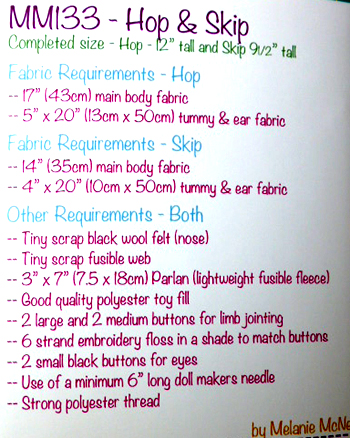 MM133 - Hop & Skip
Completed size - Hop - 12" tall and Skip 9 1/2" tall
Fabric Requirements - Hop
-- 17" (43cm) main body fabric
-- 5" x 20" (13cm x 50cm) tummy & ear fabric
Fabric Requirements - Skip
-- 14" (35cm) main body fabric
-- 4" x 20" (10cm x 50cm) tummy & ear fabric
Other Requirements - Both
-- Tiny scrap black wool felt (nose)
-- Tiny scrap fusible web
-- 3" x 7" (7.5 x 18cm) Parlan (lightweight fusible fleece)
-- Good quality polyester toy fill
-- 2 large and 2 medium buttons for limb jointing
-- 6 strand embroidery floss in a shade to match buttons
-- 2 small black buttons for eyes
-- Use of a minimum 6" long doll makers needle
-- Strong polyester thread
by Melanie McNe